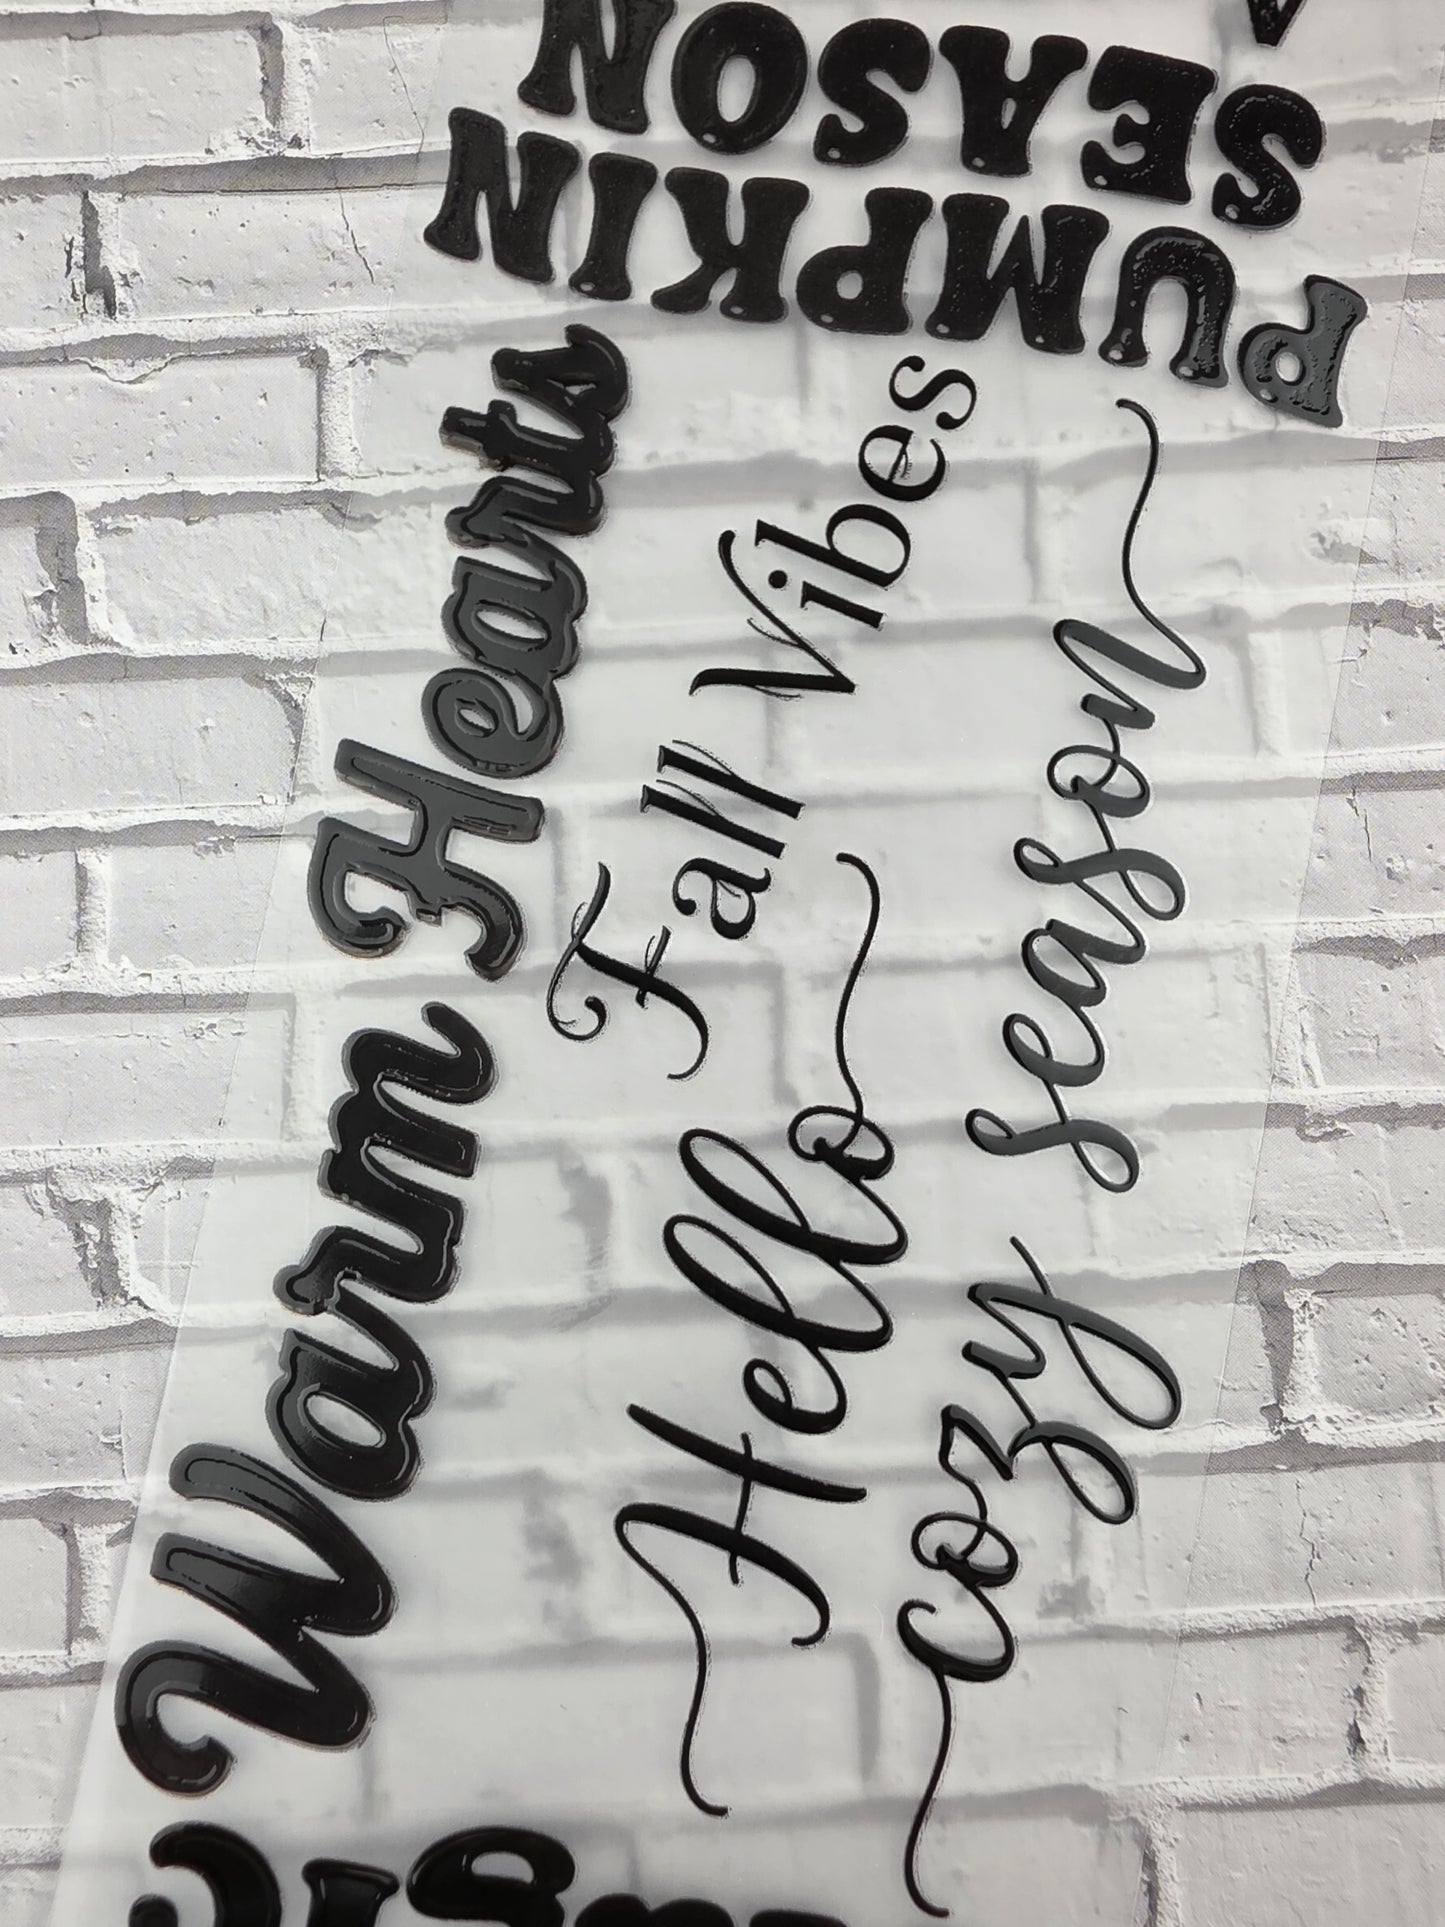 PUMPKIN
SEASON
Warm Hearts
Fall Vibes
Hello
cozy season